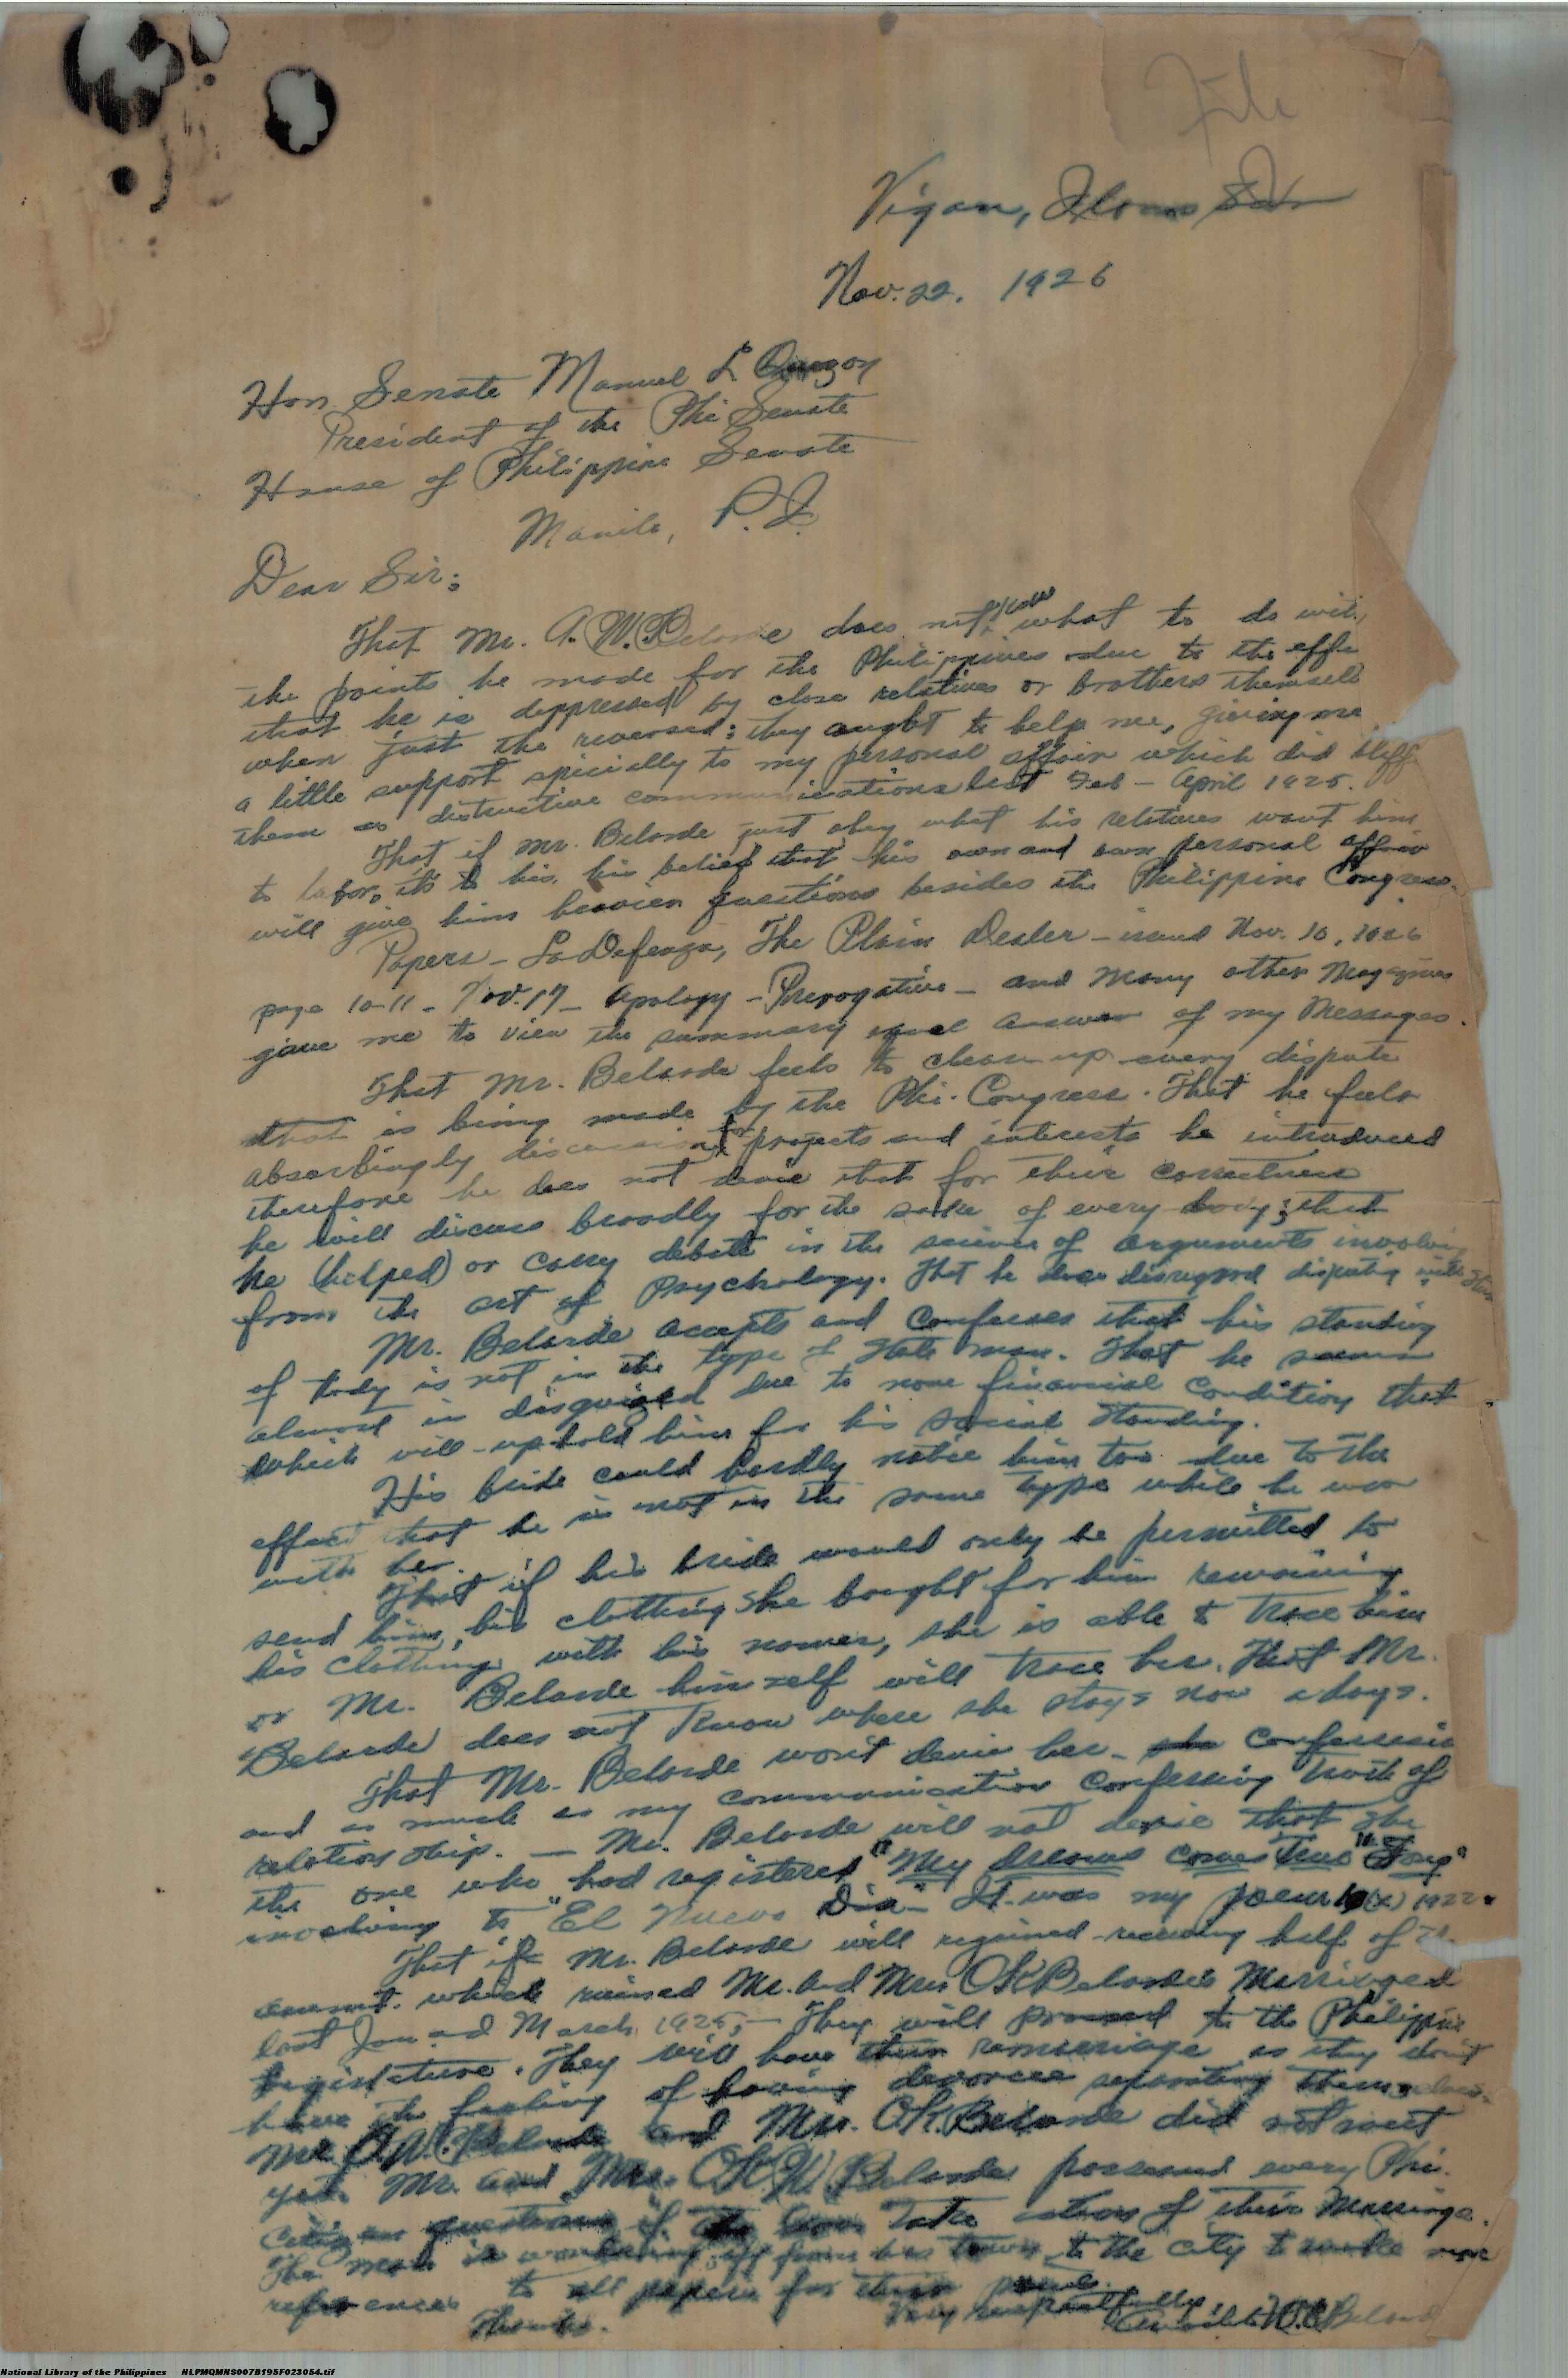 File
Vigan, Ilocos Sur
Nov. 22. 1926
Hon Senate Manuel L Quezon
President of the Phi Senate
House of Philippine Senate
Manila, P.I.
Dear Sir:
That Mr. A. W. Belarde does not know what to do with
the points he made for the Philippines due to the effe
that he is deppressed by close relatives or brothers themsell
when just the reversed; they aught to help me, giving me
a little support specially to my personal affair which did
them as distructive communications last Feb - April 1925.
That if Mr. Belarde just obey what his relatives want him
to labor, its to his, his belief that his own and own personal affair
will give him heavier questions besides the Philippine Congress.
Papers - La Defensa, The Plain Dealer - issued Nov. 10, 1926
page 10-11 - Nov. 17 - Apology - Prerogative - and many other Magazines
gave me to view the summary equal answer of my Messages.
That Mr. Belarde feels to clean up every dispute
that is being made by the Phi. Congress. That he feels
absorbingly discussion for projects and interests he introduced
therefore he does not denie that for their correctness
he will discuss broadly for the sake of every body; that
he (helped) or carry debate in the science of arguments involving
from the art of Psychology. That he does disregard disputing with
Mr. Belarde accepts and confesses that his standing
of today is not in the type of State man. That he seems
almost in disguised due to none financial condition that
which will uphold him for his social standing.
His bride could hardly notice him too due to the
effect that he is not in the same type while he was
with her.
That if his bride would only be permitted to
send him, his clothing she bought for him remaining
his clothing with his names, she is able to trace him
or Mr. Belarde himself will trace her. That Mr.
Belarde does not know where she stays now a days.
That Mr. Belarde won't denie her - confession
and as much as my communication confessing truth of
relation ship. — Mr. Belarde will not denie that she
the one who had registered "My dreams comes true"
involving to "El Nuevo Dia" It was my poem 1922.
That if Mr. Belarde will regained receiving half of
amount which ruined Mr. and Mrs OK Belarde's Marriaged
last Jan and March 1925, - They will to the Philippine
legislature. They will have their remarriage as they don't
have the feeling of having devorcee separating themselves.
Mr. A. W. Belarde and Mrs. O.K. Belarde did not meet
yet. Mr. and Mrs. O.K.W. Belarde possessed every Phi.
questions if take action of their Marriage.
The man is off from his town to the city to make more
references to all papers for their
Thanks.
Very respectfully,
W. Belarde
National Library of the Philippines NLPMQMNS007B195F023054.tif